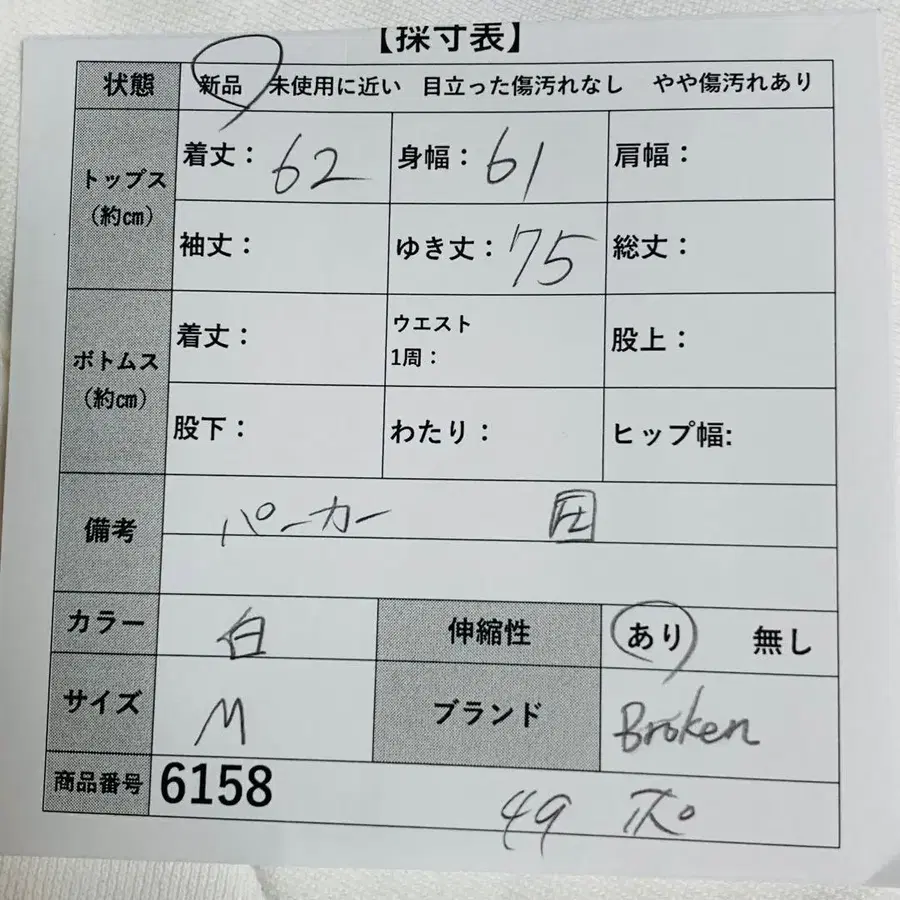 【採寸表】
状態 新品 未使用に近い 目立った傷汚れなし やや傷汚れあり
トップス（約㎝）
着丈：62 身幅：61 肩幅：
袖丈： ゆき丈：75 総丈：
ボトムス（約㎝）
着丈： ウエスト1周： 股上：
股下： わたり： ヒップ幅:
備考 パーカー
カラー 白 伸縮性 あり 無し
サイズ M ブランド Broken
商品番号 6158
49